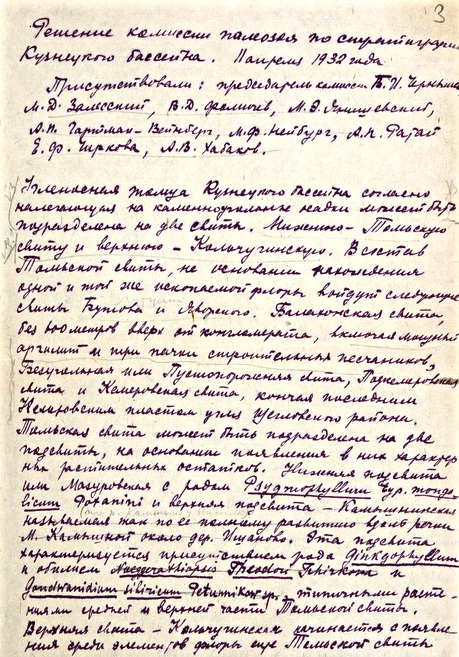 3
Решение комиссии палеозоя по стратиграфии
Кузнецкого бассейна. 11 апреля 1932 года
Присутствовали: председатель комиссии Б.И. Чернышев
М.Д. Залесский, В.Д. Фомичев, М.Э. Янишевский,
А.П. Гартман-Вейнберг, М.Ф. Нейбург, А.П. Ратай
Е.Ф. Чиркова, А.В. Хабаков.
Угленосная толща Кузнецкого бассейна согласно
налегающая на каменноугольные осадки может быть
подразделена на две свиты. Нижнюю – Томскую
свиту и верхнюю – Кольчугинскую. В состав
Томской свиты, на основании нахождения
одной и той же ископаемой флоры войдут следующие
свиты Бутова и Яворского. Балахонская свита,
без 600 метров вверх от конгломерата, включая мощный
аргилит и три пачки строительных песчаников,
Безугольная или Пустопорожняя свита, Подкемеровская
свита и Кемеровская свита, кончая последним
Кемеровским пластом угля Щегловского района.
Томьская свита может быть подразделена на две
подсвиты, на основании появления в них характер
ных растительных остатков. Нижняя подсвита
или Мазуровская с родом Psygmophyllum
Potanini и верхняя подсвита –
называемая так по ее полному развитию вдоль речки
М. около дер. Ишаново. Эта подсвита
характеризуется присутствием рода Ginkgophyllum
и обилием
Gondwanidium sibiricum Petunnikov sp. – типичными расте-
ниями средней и верхней части Томьской свиты.
Верхняя свита – Кольчугинская начинается с появле-
ния среди элементов флоры еще Томьской свиты